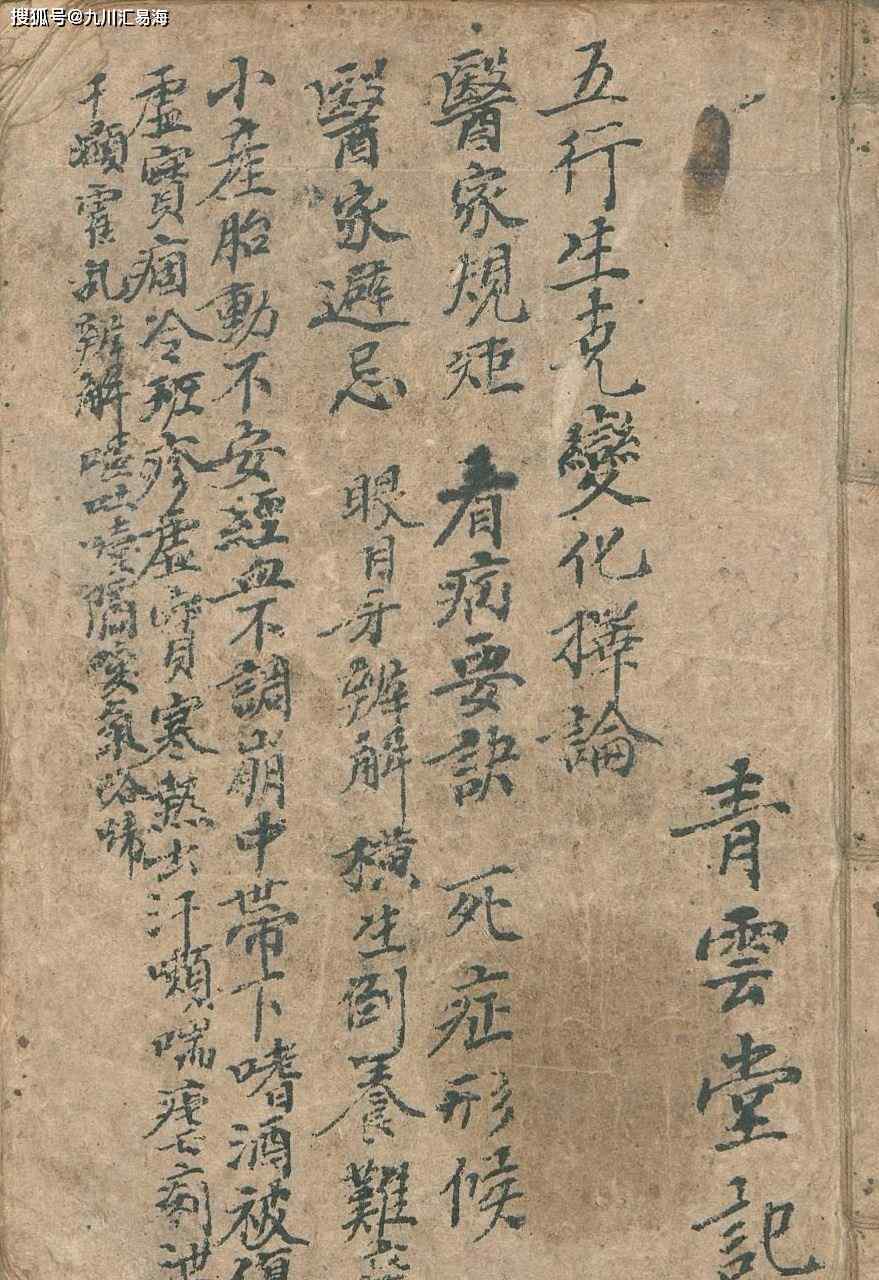 搜狐号@九川汇易海
青雲堂記
五行生克變化擇論
醫家規矩 看病要訣 死症形候
醫家避忌 眼目牙辨解 橫生倒養難產
小產胎動不安經血不調崩中帶下嗜酒被傷
虛實痼冷班疹虛實寒熱出汗喘瘧痢泄
干癩霍乱辨解嘔吐噎隔噯氣